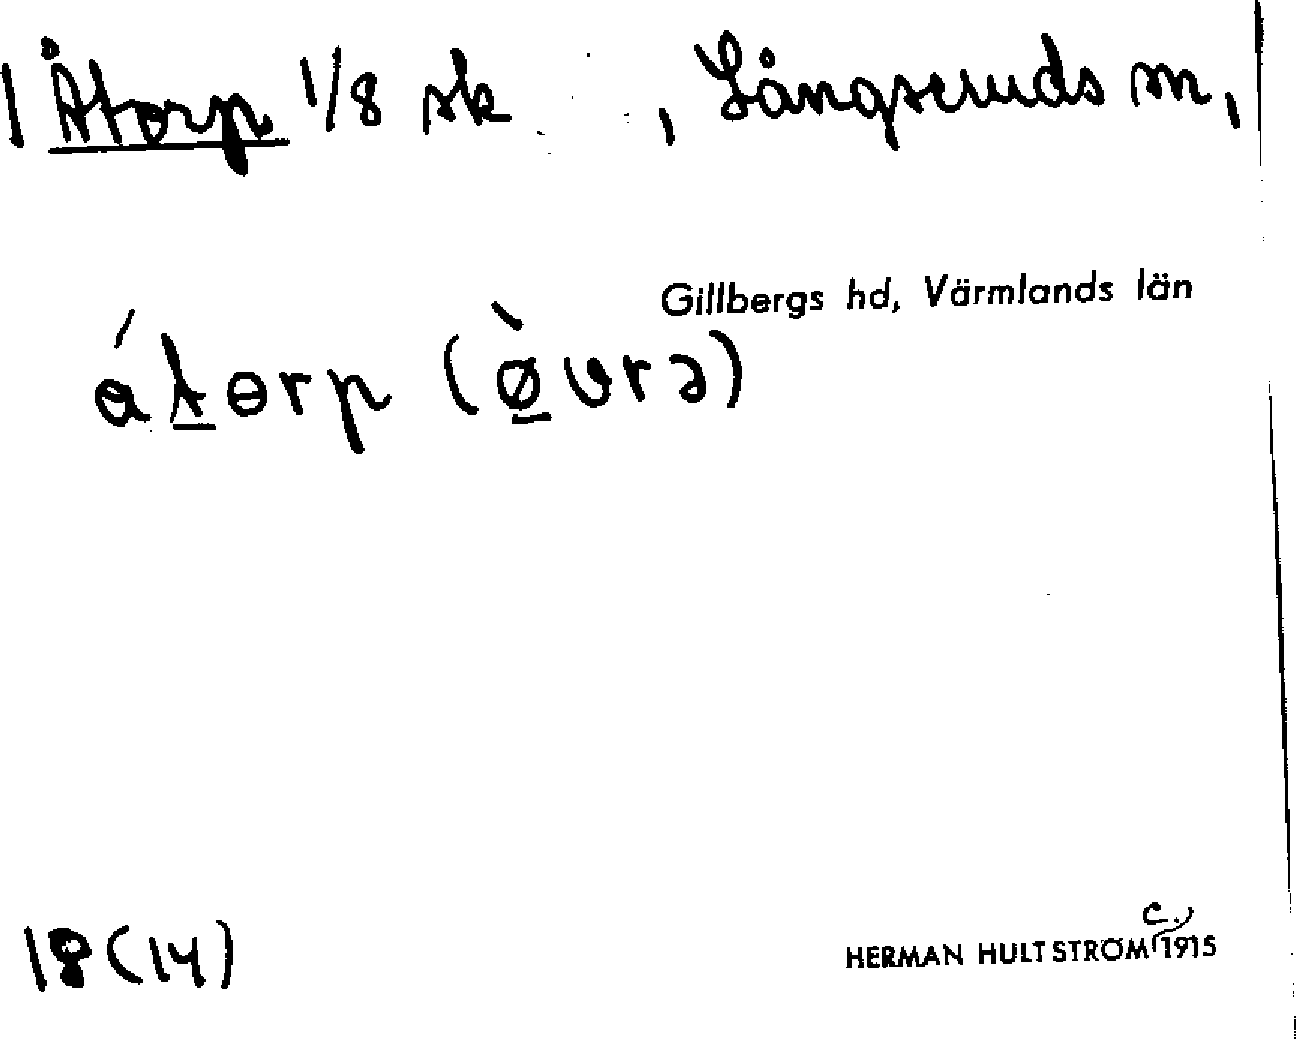 1 Åtorp 1/8 sk , Långseruds sn,
Gillbergs hd, Värmlands län
átɵrp (ø̀vrə)
18 (14)
HERMAN HULTSTRÖM c. 1915